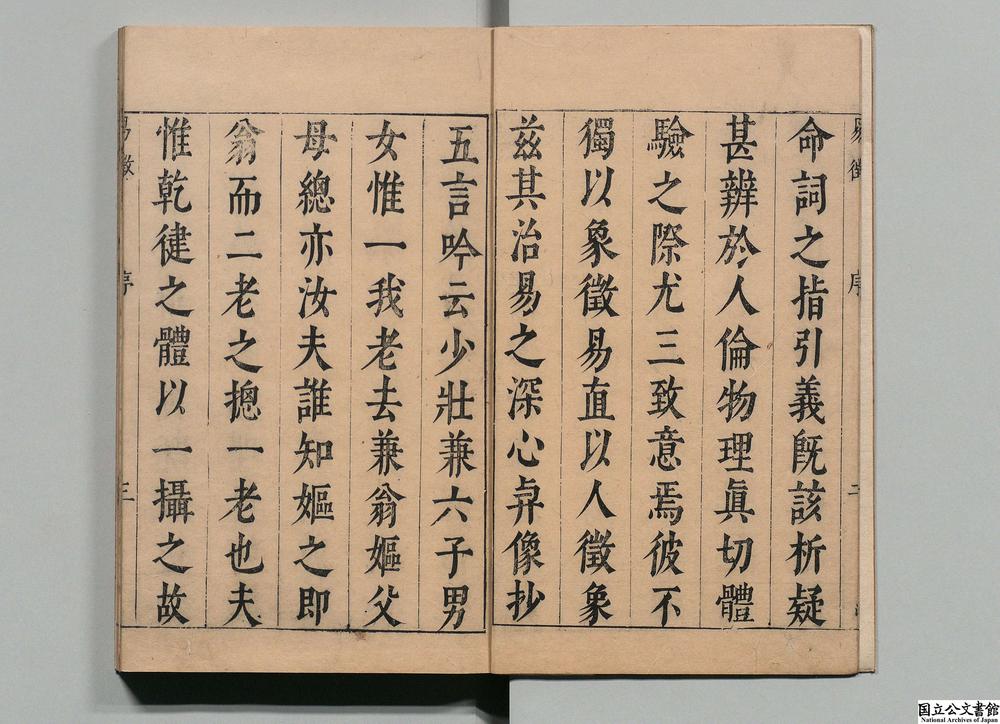 命詞之指引義既該析疑
甚辨於人倫物理眞切體
驗之際尤三致意焉彼不
獨以象徵易直以人徵象
茲其治易之深心弁像抄
五言吟云少壯兼六子男
女惟一我老去兼翁嫗父
母總亦汝夫誰知嫗之即
翁而二老之摠一老也夫
惟乾健之體以一攝之故
易徵 序 三
国立公文書館
National Archives of Japan